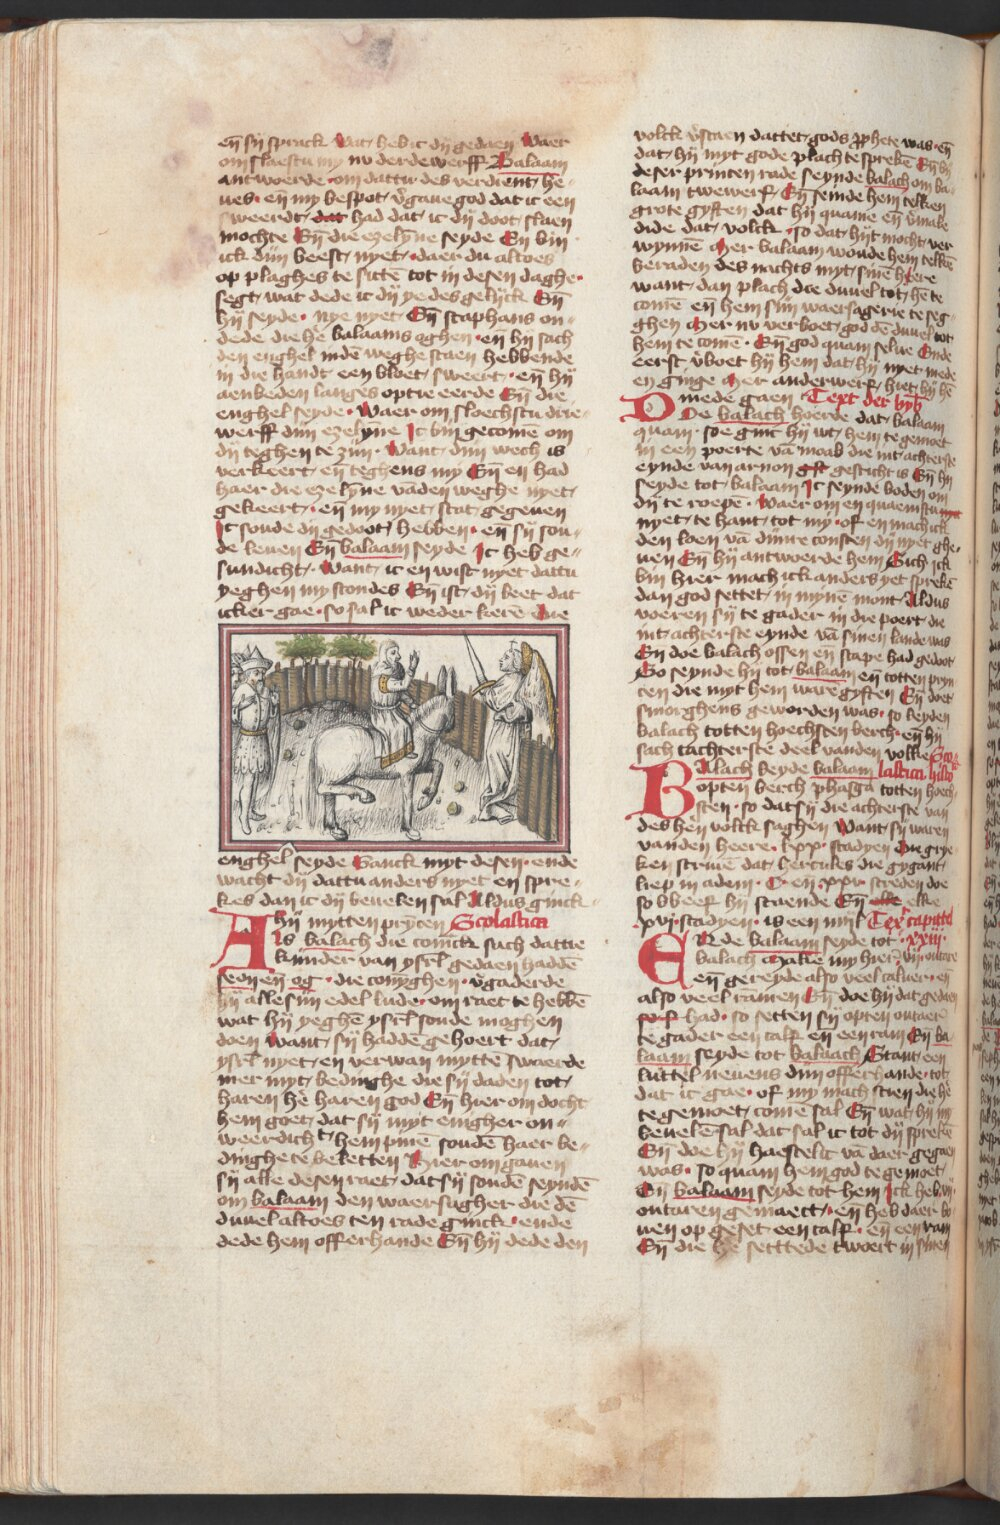 en̄ sy sprack Wat heb ic dy gedaen Waer
om slaestu my nv derdewerff Balaam
antwoerde om dattu des verdient he-
ues en my bespot v̓gaue god dat ic een
sweerdt dat had dat ic dy doot slaen
mochte En̄ die ezelȳne seyde En̄ bin
ick dijn beest nyet daer du altoes
op plaghes te sittē tot in desen daghe
segt wat dede ic dy ye des gelijck En̄
hij seyde nye nyet En̄ stap hans on-
dede die he balaams oghen en̄ hij sach
den enghel indē weghe staen hebbende
in die handt een bloet sweert en̄ hij
aenbeden langes op tie eerde En̄ die
enghel seyde Waer om sloechstu drie-
werff dijn ezelȳne Ic bin gecomē om
dy teghen te zijn Want dijn wech is
verkeert en̄ teghens my En̄ en had
haer die ezelȳne vādan weghe nyet
gekeert en̄ my nyet stat gegeuen
Ic soude dy gedoot hebben en̄ sy sou-
de leuen En̄ balaam seyde Ic heb ge-
sundicht Want ic en wist nyet dattu
yeghen my stondes En̄ ist dy leet dat
ick ier gae so sal ic weder keerē Die
enghel seyde Ganck myt desen ende
wacht dy dattu anders nyet en spre-
kes dan ic dy beuelen sal Aldus ginck
hij mytten prȳcen Scolastica
Als balach die coninck sach dattie
kijnder van ysrl̄ gedaen haddē
seon en̄ og die conyghen v̓gaderde
hij alle sijn edel lude om raet te hebbē
wat hij yeghē ysrl̄ soude moghen
doen Want sij haddē gehoert dat
ysrl̄ nyet en verwan myttē swaerde
mer myt bedinghe die sij daden tot
haren he haren god En̄ hier om docht
hem goet dat sij myt enigher on-
weerdicht hem pinē soudē haer be-
dinghe te beletten Hier om gauen
sij alle desen raet dat sij soudē seyndē
om balaam den waersagher die dē
duuel altoes ten rade ginck ende
dede hem offerhande En̄ hij dede den
volck v̓staen dattet gods ꝓphete was en̄
dat hij myt gode plach te sprekē En̄ by
deser princen rade seynde balach om ba-
laam twewerf En̄ seinde hem telken
grote gyften dat hij quame en̄ v̓male
dide dat volck so dat hijt mocht ver
wynnē Mer balaam woude hem telkē
beraden des nachts myt sinē heere
want dan plach die duuel tot he te
comē en̄ hem sijn waersagerie te seg-
ghen Mer nv verboet god dē duuel tot
hem te comē En̄ god quam selue Ende
eerst v̓boet hij hem dat hij nyet mede
en ginge Mer anderwerf hiet hij hē
mede gaen Text der byb̄
Doe balach hoerde dat balaam
quam soe ginc hij wt hem te gemoet
in een poerte vā moab die int achterste
eynde van arnon gesticht is En̄ hij
seyde tot balaam Ic seynde boden om
dy te roepē Waer om en quaemstu
nyet te hant tot my of en mach ick
den loen vā dijnre comsten dy nyet ghe-
uen En̄ hij antwoerde hem Sich ick
bin hier mach ick anders yet sprekē
dan god settet in mynē mont Aldus
voeren sij te gader in die poert die
int achterste eynde vā sinen lande was
En̄ doe balach ossen en̄ scape had gedoot
So seynde hij tot balaam en̄ totten pryn
cen die myt hem ware gyften En̄ doet
smorghens geworden was so leyden
balach totten hoechsten berch en̄ hij
sach tachterste deel vanden volke Sco-
Balach leyde balaam lastica histo
opten berch phasga totten hoech
sten so dat sij die achterste van
des hen volck saghen Want sij waren
vanden heere lxx stadyen Die grye
ken scriuē dat hercules die gygant
liep in adem C en̄ xxv screden doe
so bleef hij staende En̄ elke
xvi stadyen is een mijl Tex̄ capittel
xxiij
Ende balaam seyde tot
balach Make my hier vij outare
en̄ gereyde also veel caluer en̄
also veel rāmen En̄ doe hij dat gedaen
had so setten sij opten outaer
te gader een calf en̄ een ram En̄ ba
laam seyde tot balaach Stant een
luttel neuens dijn offerhande tot
dat ic gae of my mach scien die he
te gemoet comē sal En̄ wat hij my
beuelē sal dat sal ic tot dy sprekē
En̄ doe hij haestelic vā daer gegaen
was so quam hem god te gemoet
En̄ balaam seyde tot hem Ick heb vij
outaren gemaect en̄ heb daer bo
uen op geset een calf en̄ een ram
En̄ die he settede twoert in sinen